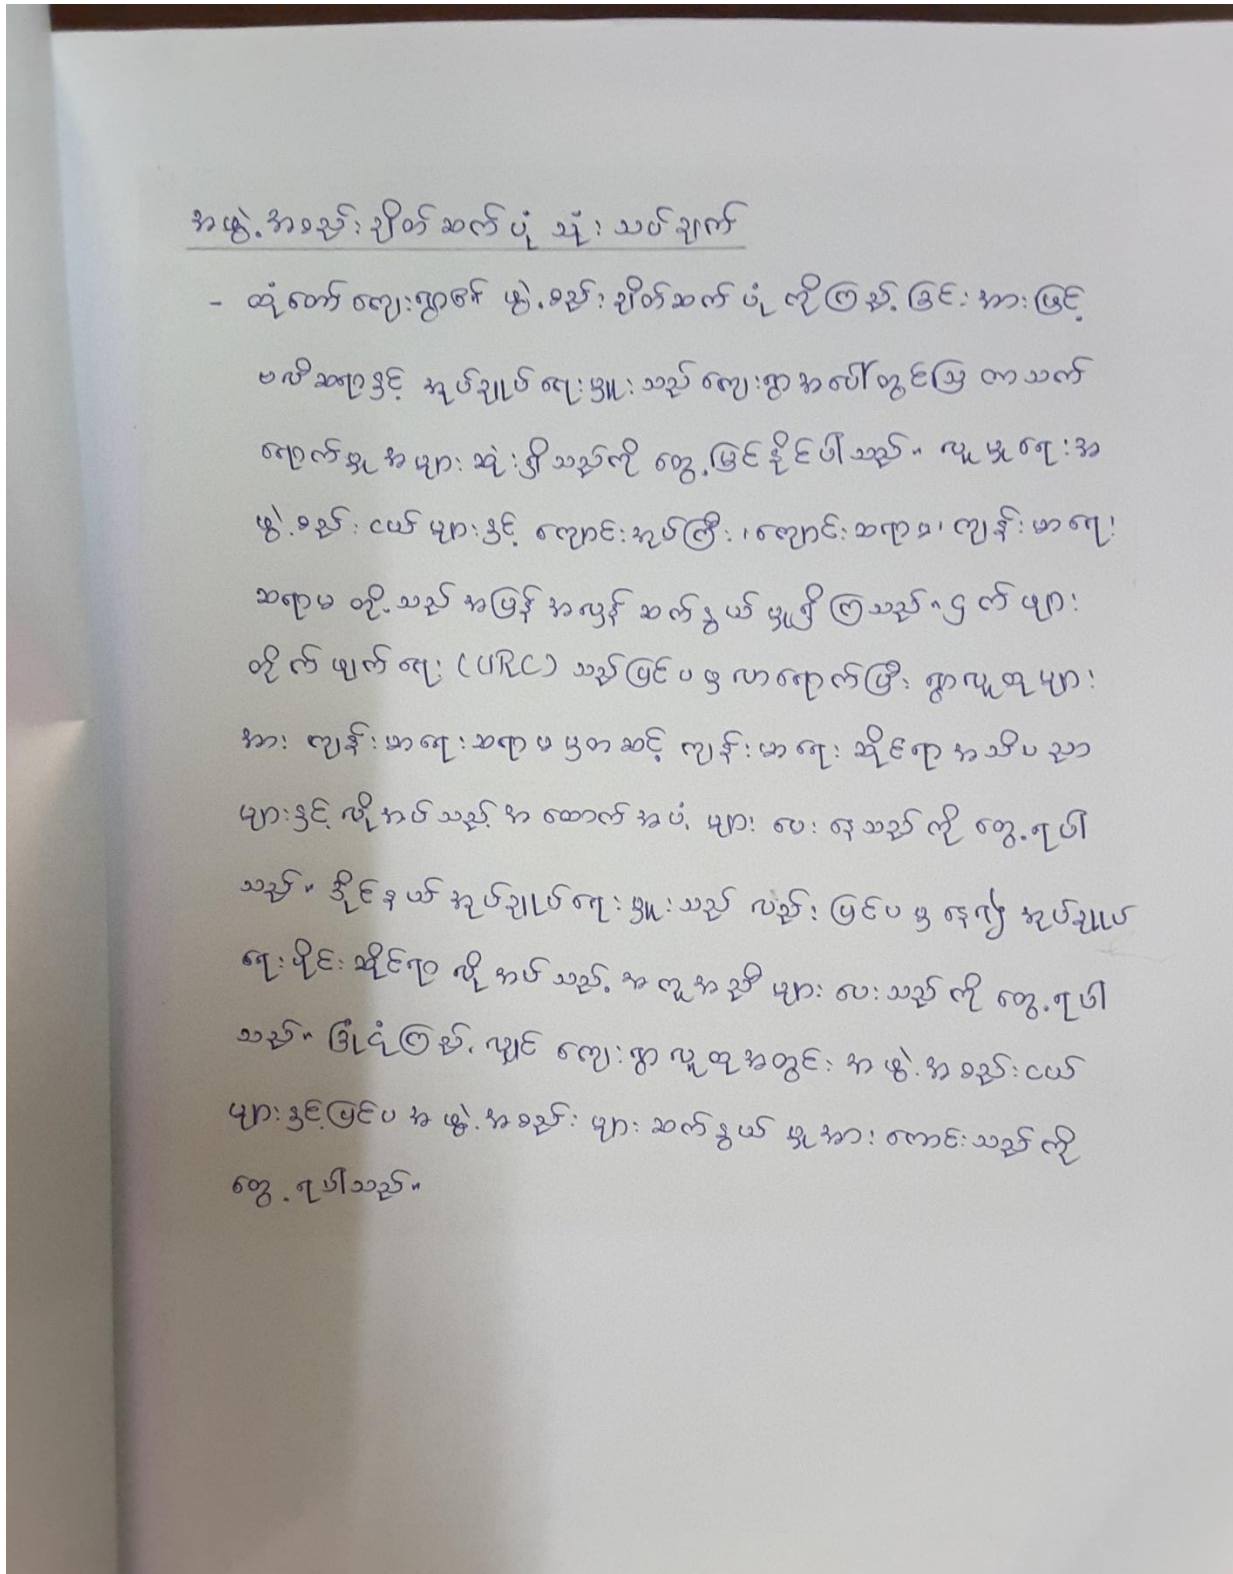 အဖွဲ့အစည်းချိတ်ဆက်ပုံ သုံးသပ်ချက်
- ထုံတော်ကျေးရွာ၏ ဖွဲ့စည်းချိတ်ဆက်ပုံကိုကြည့်ခြင်းအားဖြင့်
ဗလိဆရာနှင့် အုပ်ချုပ်ရေးမှူးသည် ကျေးရွာအပေါ်တွင်ဩဇာသက်
ရောက်မှုအများဆုံးရှိသည်ကို တွေ့မြင်နိုင်ပါသည်။ လူမှုရေးအ
ဖွဲ့စည်းငယ်များနှင့် ကျောင်းအုပ်ကြီး၊ ကျောင်းဆရာမ၊ ကျန်းမာရေး
ဆရာမတို့သည် အပြန်အလှန် ဆက်နွယ်မှုရှိကြသည်။ ငှက်ဖျား
တိုက်ဖျက်ရေး (URC) သည်ပြင်ပမှလာရောက်ပြီး ရွာလူထုများ
အား ကျန်းမာရေးဆရာမမှတဆင့် ကျန်းမာရေးဆိုင်ရာအသိပညာ
များနှင့် လိုအပ်သည့်အထောက်အပံ့များ ပေးနေသည်ကို တွေ့ရပါ
သည်။ ဒိုင်နယ်အုပ်ချုပ်ရေးမှူးသည် လည်း ပြင်ပမှနေ၍ အုပ်ချုပ်
ရေးပိုင်းဆိုင်ရာ လိုအပ်သည့်အကူအညီများပေးသည်ကို တွေ့ရပါ
သည်။ ခြုံငုံကြည့်လျှင် ကျေးရွာလူထုအတွင်း အဖွဲ့အစည်းငယ်
များနှင့်ပြင်ပအဖွဲ့အစည်းများ ဆက်နွယ်မှုအားကောင်းသည်ကို
တွေ့ရပါသည်။